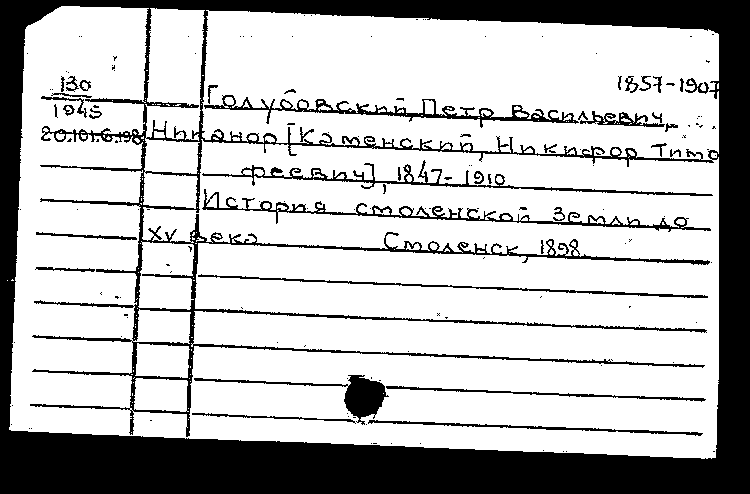 1857-1907
130
Голубовский, Петр Васильевич,
1945
20.101.6.198 Никанор [Каменский, Никифор Тимо
феевич], 1847-1910
История смоленской земли до
XV века Смоленск, 1898.